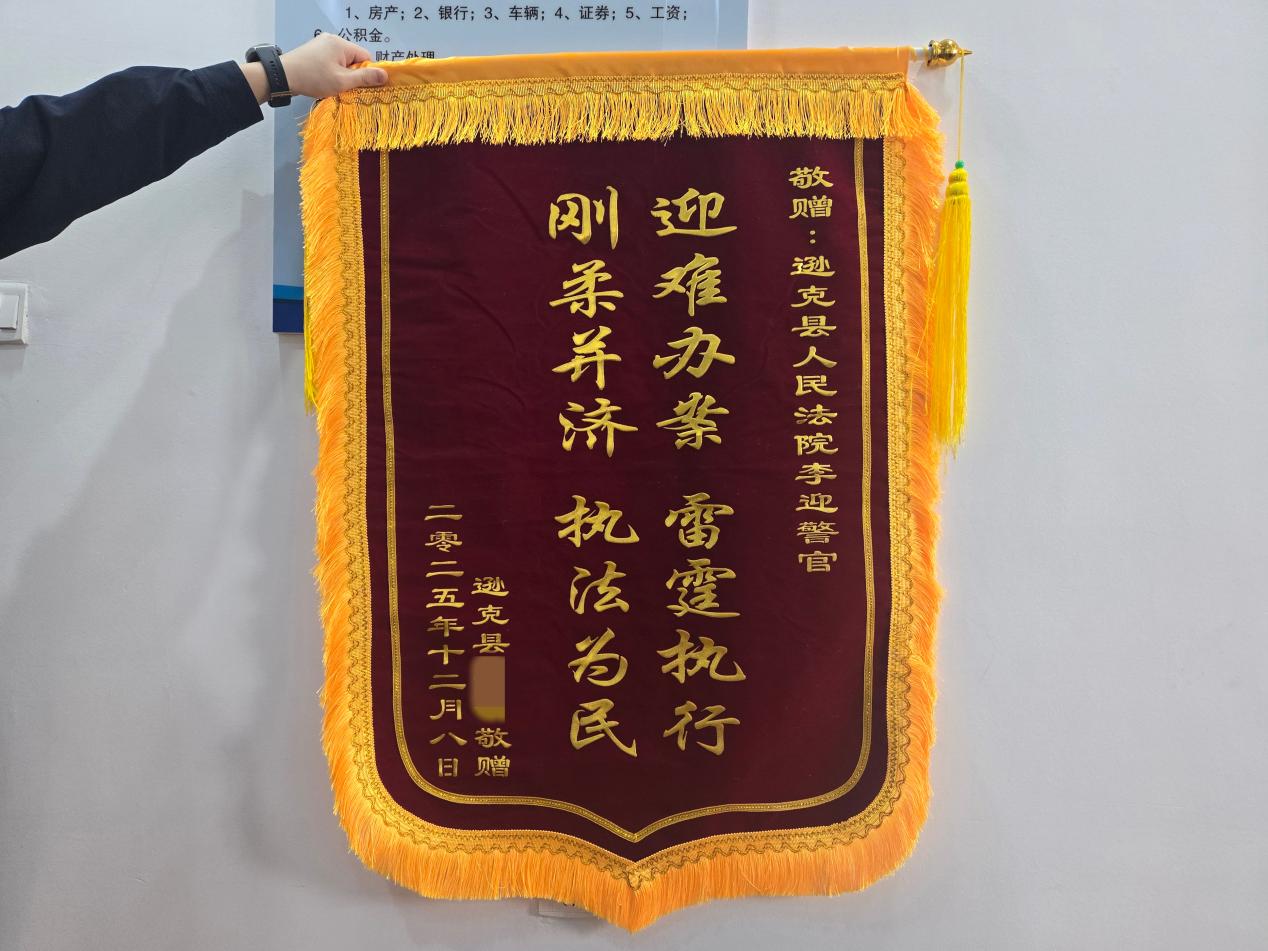 1、房产；2、银行；3、车辆；4、证券；5、工资；
6、公积金。
财产处理
敬赠：逊克县人民法院李迎警官
迎难办案 雷霆执行
刚柔并济 执法为民
逊克县 敬赠
二零二五年十二月八日